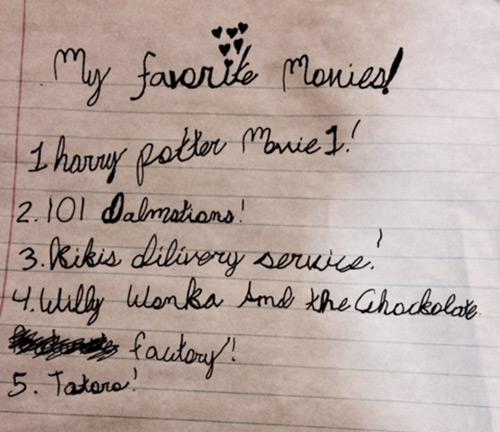 My favorite Movies!
1 harry potter Movie 1!
2. 101 Dalmations!
3. Kikis dilivery service!
4. Willy Wonka And the Chockolate
factory!
5. Totoro!